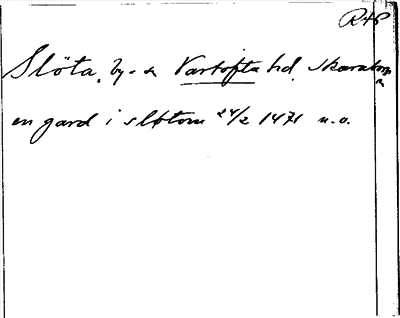 R48
Slöta, by o sn Vartofta hd. Skarabor
en gard i slötom 24/2 1471 u.o.